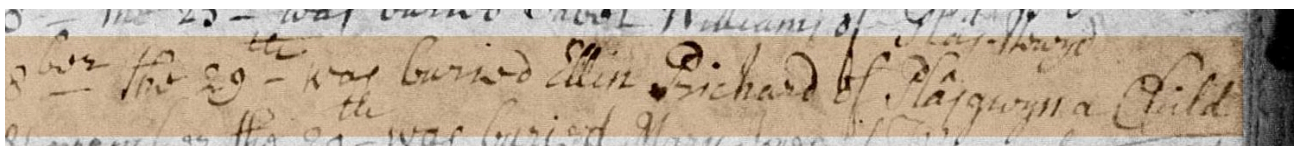 the 25th was buried Robert Williams of Plas-
ber the 29th was buried Ellin Richard of Plasgwyn a Child
the 29th was buried Mary